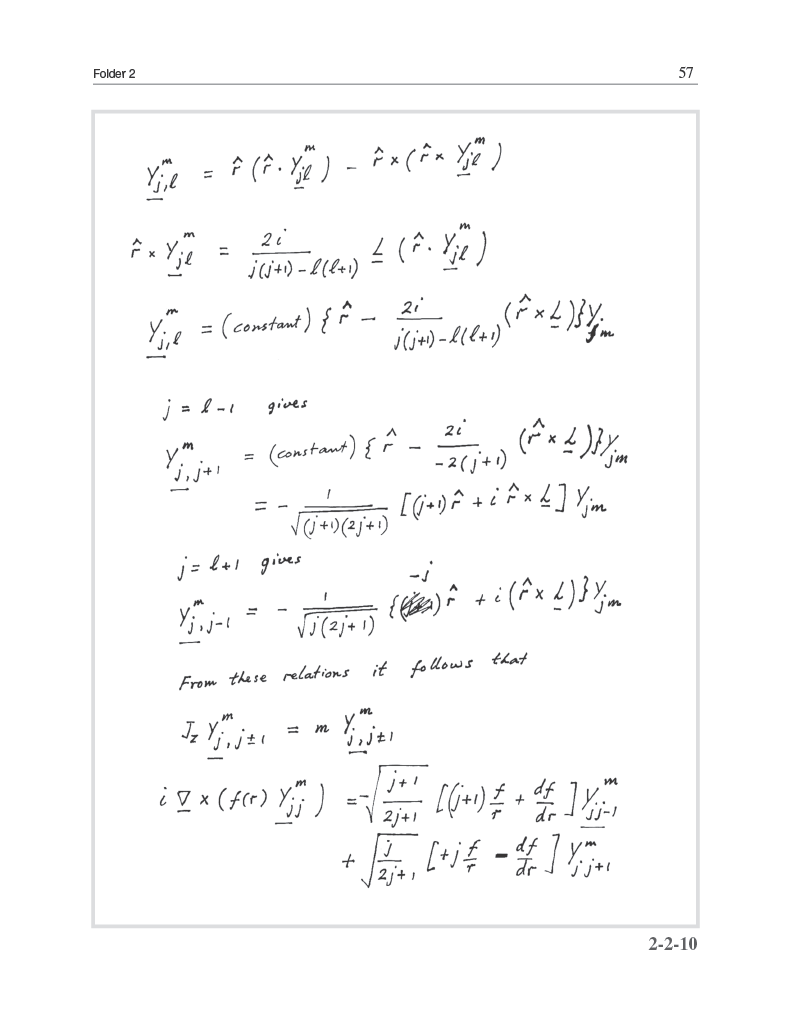 Folder 2 57
Y_{j,l}^m = r̂ (r̂ · Y_{jl}^m) − r̂ × (r̂ × Y_{jl}^m)
r̂ × Y_{jl}^m = 2i / (j(j+1) − l(l+1)) L (r̂ · Y_{jl}^m)
Y_{j,l}^m = (constant) { r̂ − 2i / (j(j+1) − l(l+1)) (r̂ × L) } Y_{jm}
j = l − 1 gives
Y_{j,j+1}^m = (constant) { r̂ − 2i / (−2(j+1)) (r̂ × L) } Y_{jm}
= − 1 / √((j+1)(2j+1)) [(j+1) r̂ + i r̂ × L] Y_{jm}
j = l + 1 gives
Y_{j,j−1}^m = − 1 / √(j(2j+1)) { −j r̂ + i (r̂ × L) } Y_{jm}
From these relations it follows that
J_z Y_{j,j±1}^m = m Y_{j,j±1}^m
i ∇ × (f(r) Y_{jj}^m) = −√((j+1)/(2j+1)) [(j+1) f/r + df/dr] Y_{jj−1}^m
+ √(j/(2j+1)) [+j f/r − df/dr] Y_{jj+1}^m
2-2-10